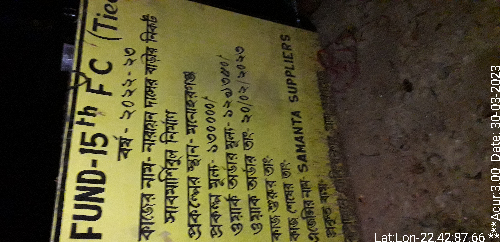 FUND-15th FC (Tied
বর্ষ - ২০২২-২৩
কাজের নাম- নারায়ন দাসের বাড়ীর নিকট
সাবমার্শিবল নির্মাণ
প্রকল্পের স্থান-
প্রকল্প মূল্য- ১৩০০০০/
ওয়ার্ক অর্ডার মূল্য-
ওয়ার্ক অর্ডার তাং- ২০/০২/২০২৩
কাজ শুরুর তাং-
কাজ শেষের তাং-
এজেন্সির নাম- SAMANTA SUPPLIERS
প্রকৃত ব্যয়-
Lat:Lon-22.42:87.66
***Acur:3.00 Date: 30-03-2023